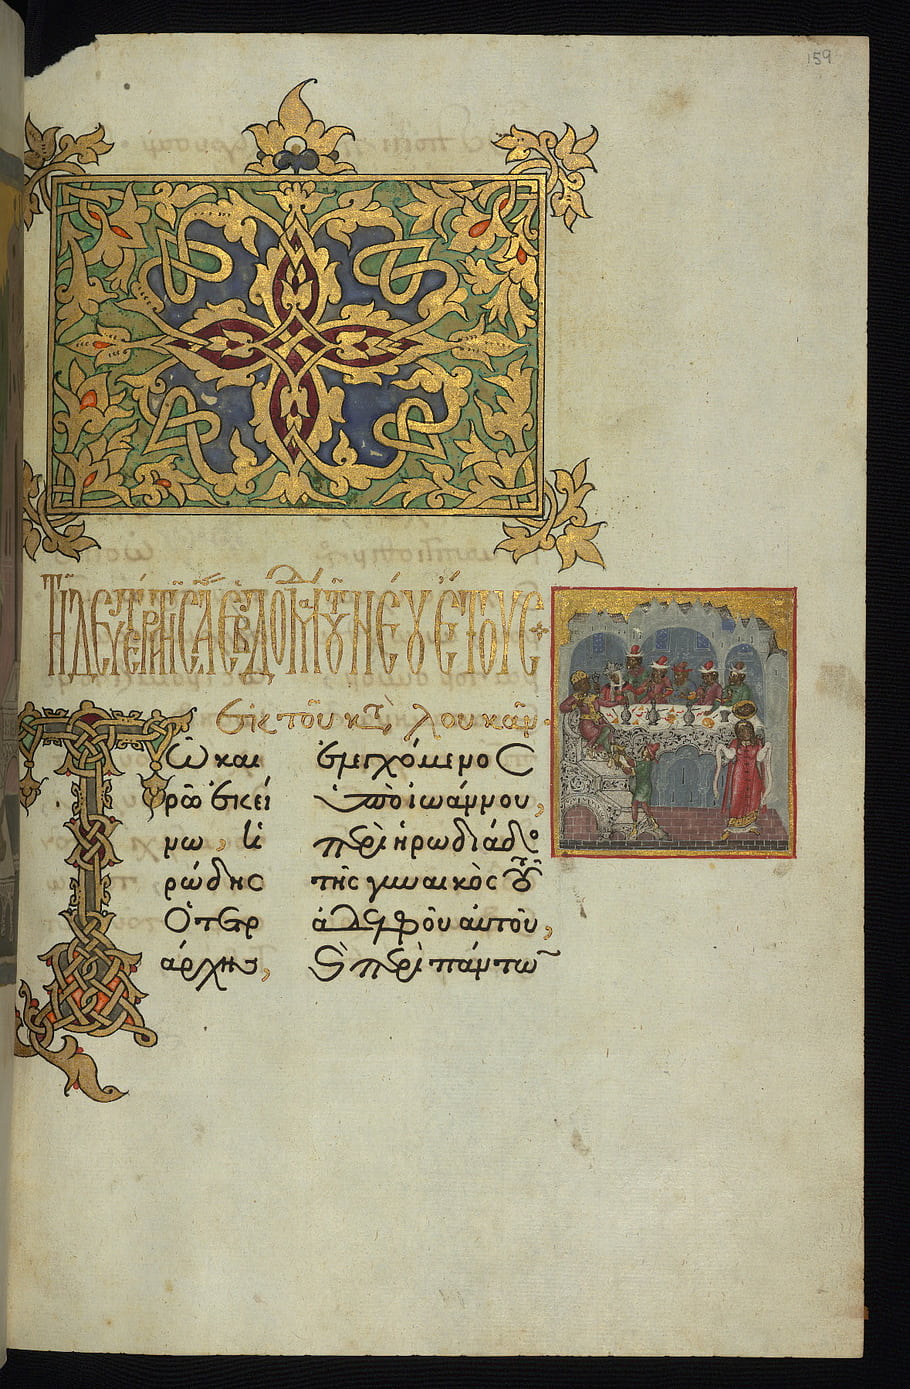 159
Τῇ δευτέρα τῆς α ἑβδομά τοῦ νέου ἔτους
ἐκ τοῦ κτ λουκᾶν.
Τῶ και
ρῶ ἐκεί
νω, ἡ
ρώδης
ὁ τετρ
άρχης,
ἐλεγχόμενος
ὑπὸ ἰωάννου,
περὶ ἡρωδιάδος
τῆς γυναικὸς τοῦ
ἀδελφοῦ αὐτοῦ,
ϗ περὶ πάντων